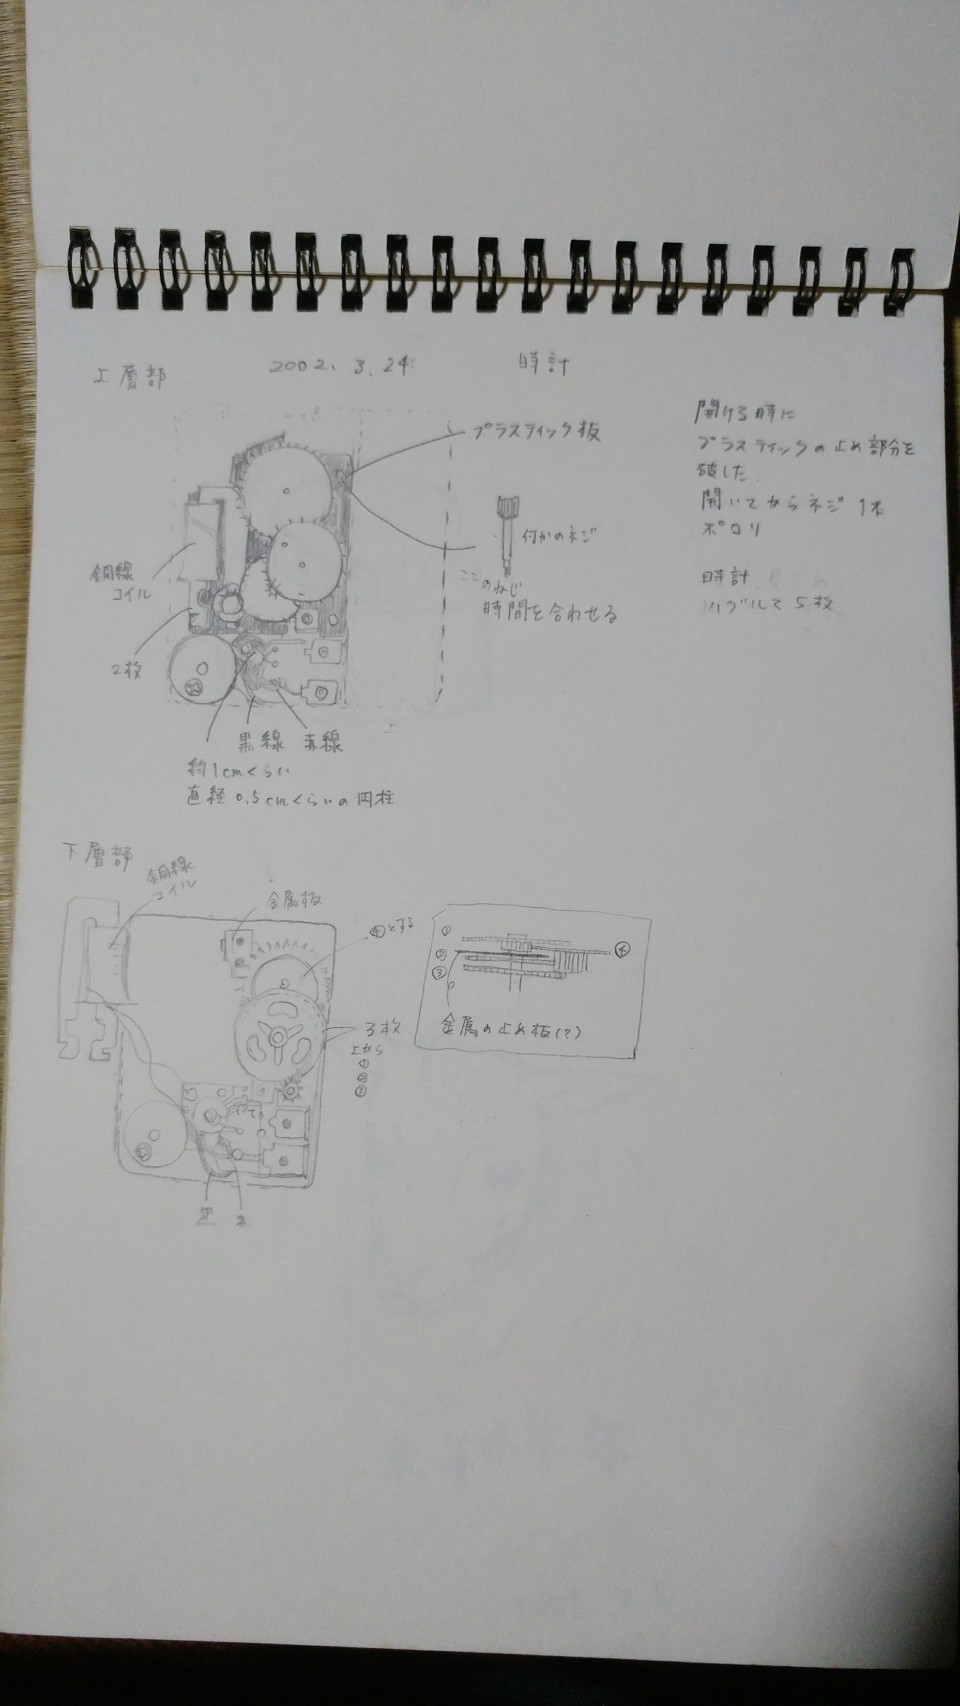 上層部
2002. 3. 24
時計
プラスティック板
開ける時に
プラスティックの止め部分を
破した.
開いてからネジ 1本
ポロリ
時計
5枚
何かのネジ
ここのねじ
時間を合わせる
銅線
コイル
2枚
黒線 赤線
約1cmくらい
直径0.5cmくらいの円柱
下層部
銅線
コイル
金属板
④とする
3枚
上から
①
②
③
①
②
③
④
金属の止め板(?)
黒 赤